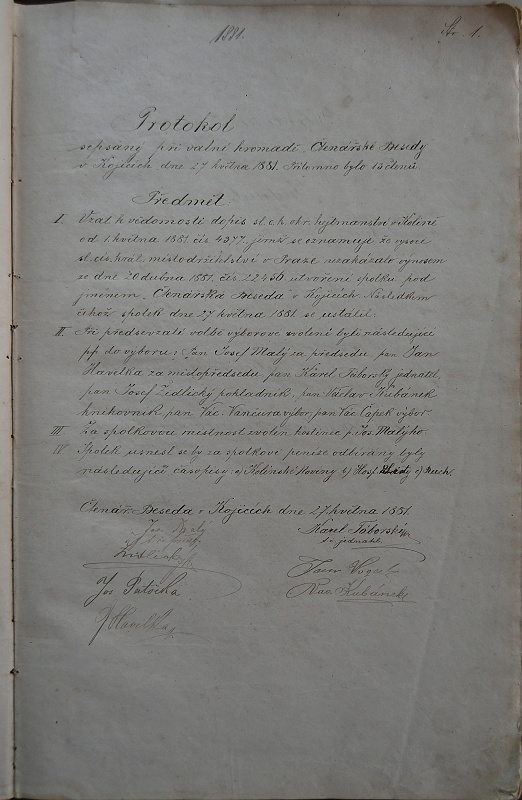 1881.
Str. 1.
Protokol
sepsaný při valné hromadě „Čtenářské Besedy
v Kojicích dne 27 května 1881. Přítomno bylo 13 členů
Předmět
I Vzal k vědomosti dopis sl. c. k. okr. hejtmanství v Kolíně
od 1. května 1881. čís 4577. jímž se oznamuje že vysoce
sl. cís. král. místodržitelství v Praze nezakázalo výnosem
ze dne 20 dubna 1881. čís. 22456 utvoření spolku pod
jménem „Čtenářská Beseda v Kojicích. Následkem
čehož spolek dne 27 května 1881. se ustálil.
II. Při předsevzaté volbě výborové zvoleni byli následující
pp do výboru: Pan Josef Malý za předsedu, pan Jan
Havelka za místopředsedu, pan Karel Táborský jednatel,
pan Josef Židlický pokladník, pan Václav Kubánek
knihovník, pan Vác. Vančura výbor, pan Vác Čapek výbor
III Za spolkovou místnost zvolen hostinec p. Jos. Malýho.
IV Spolek usnesl se by za spolkové peníze odbírány byly
následující časopisy a) Kolínské Noviny b) c) Ruch.
Čtenář. Beseda v Kojicích dne 27. května 1881.
Jos. Malý
Karel Táborský
t. č. jednatel
Jos Patočka
Kubánek
J Havelka